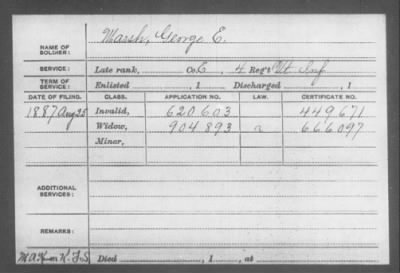 Marsh, George E.
NAME OF SOLDIER:
SERVICE: Late rank, Co. C, 4 Reg't Vt Inf
TERM OF SERVICE: Enlisted , 1 Discharged , 1
DATE OF FILING. CLASS. APPLICATION NO. LAW. CERTIFICATE NO.
1887 Aug 25 Invalid, 620603 449671
Widow, 904893 666097
Minor,
ADDITIONAL SERVICES:
REMARKS:
Died , 1 , at